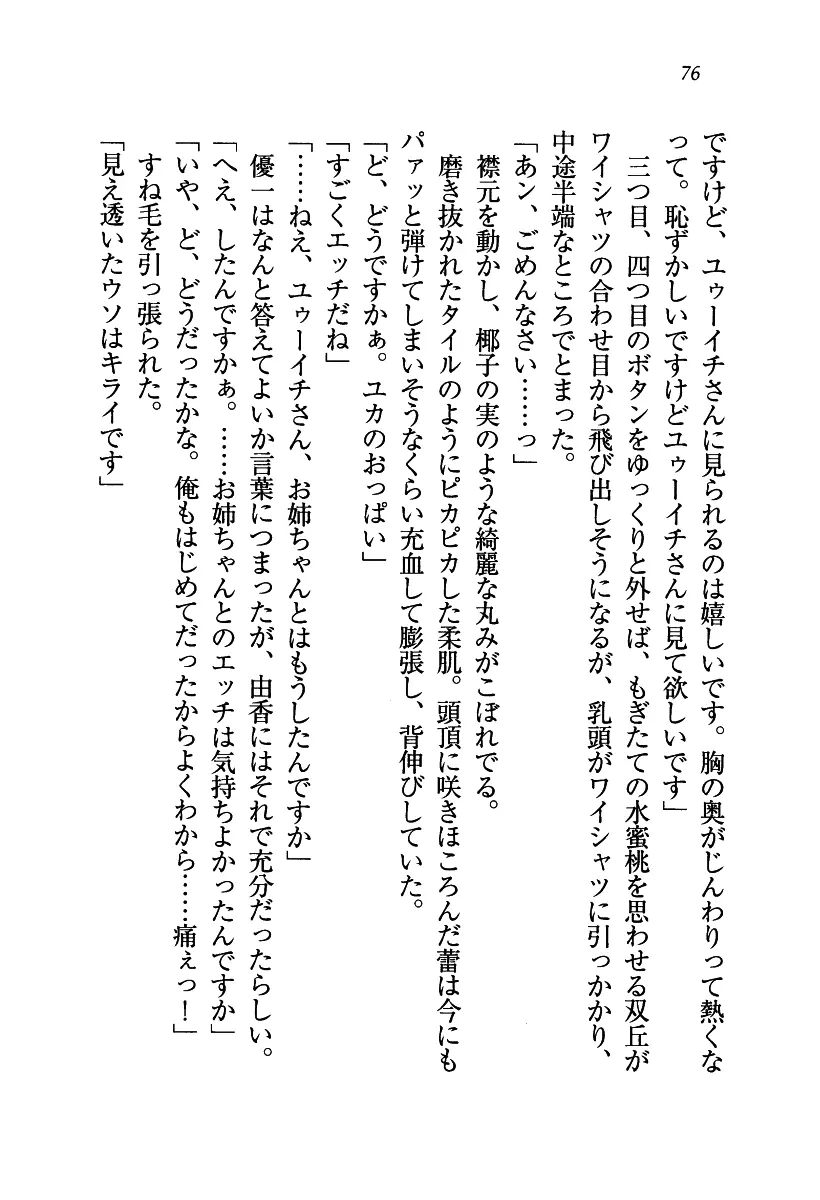 76
ですけど、ユゥーイチさんに見られるのは嬉しいです。胸の奥がじんわりって熱くな
って。恥ずかしいですけどユゥーイチさんに見て欲しいです」
三つ目、四つ目のボタンをゆっくりと外せば、もぎたての水蜜桃を思わせる双丘が
ワイシャツの合わせ目から飛び出しそうになるが、乳頭がワイシャツに引っかかり、
中途半端なところでとまった。
「あン、ごめんなさい……っ」
襟元を動かし、椰子の実のような綺麗な丸みがこぼれでる。
磨き抜かれたタイルのようにピカピカした柔肌。頭頂に咲きほころんだ蕾は今にも
パァッと弾けてしまいそうなくらい充血して膨張し、背伸びしていた。
「ど、どうですかぁ。ユカのおっぱい」
「すごくエッチだね」
「……ねえ、ユゥーイチさん、お姉ちゃんとはもうしたんですか」
優一はなんと答えてよいか言葉につまったが、由香にはそれで充分だったらしい。
「へえ、したんですかぁ。……お姉ちゃんとのエッチは気持ちよかったんですか」
「いや、ど、どうだったかな。俺もはじめてだったからよくわから……痛ぇっ！」
すね毛を引っ張られた。
「見え透いたウソはキライです」